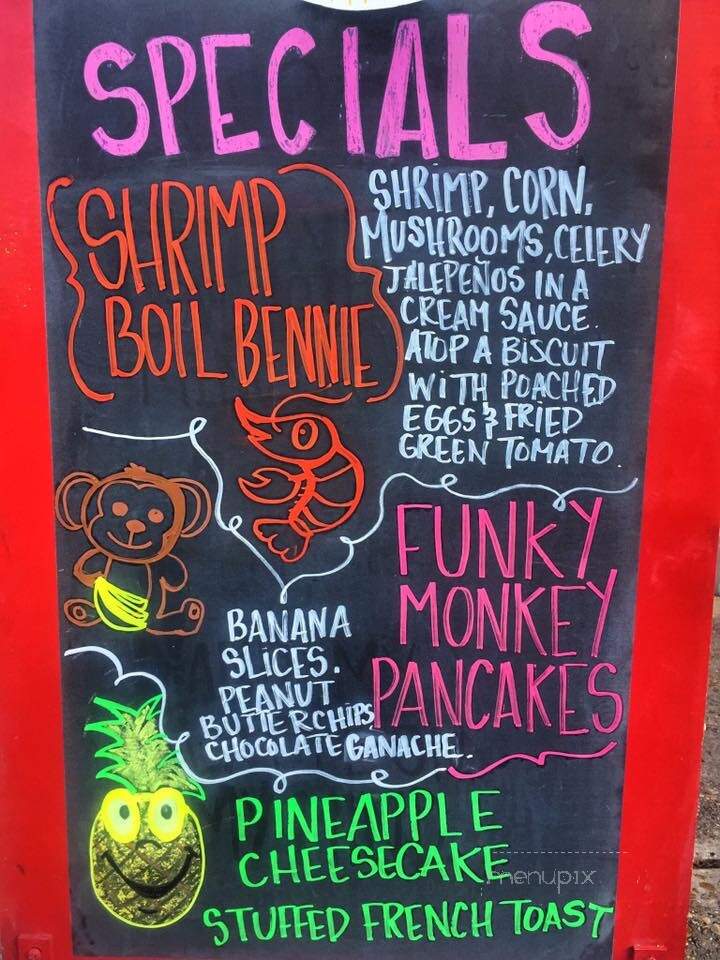 SPECIALS
SHRIMP
BOIL BENNIE
SHRIMP, CORN,
MUSHROOMS, CELERY
JALEPEÑOS IN A
CREAM SAUCE.
ATOP A BISCUIT
WITH POACHED
EGGS & FRIED
GREEN TOMATO.
FUNKY
MONKEY
PANCAKES
BANANA
SLICES.
PEANUT
BUTTERCHIPS
CHOCOLATE GANACHE.
PINEAPPLE
CHEESECAKE
STUFFED FRENCH TOAST
menupix